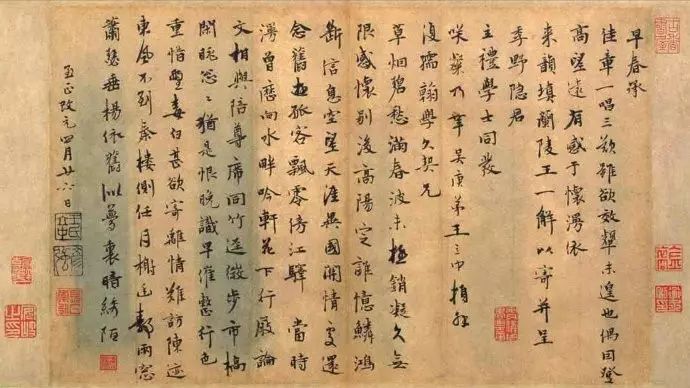 早春承
佳章一唱三歎雖欲效顰未遑也偶因登
高望遠有感于懷漫依
來韻填蘭陵王一解以寄并呈
季野隱君
主禮學士同發
咲粲乃幸 吳庚弟王立中頓首
復孺翰學久契兄
草烟碧愁滿春波未極銷凝久無
限感懷別後高陽定誰憶鱗鴻
斷信息空望天涯異國關情處還
念舊孤客飄零傍江驛 當時
漫曾歷向水畔吟軒花下行屐論
文相與陪尊席同竹逕微步市橋
閑眺怱〻猶是恨晚識早催整行色
重惜白甚欲寄離情難訪陳迹
東風不到秦樓側任月榭雨窗
蕭瑟垂楊依舊似夢裏暗綺陌
至正改元四月廿六日